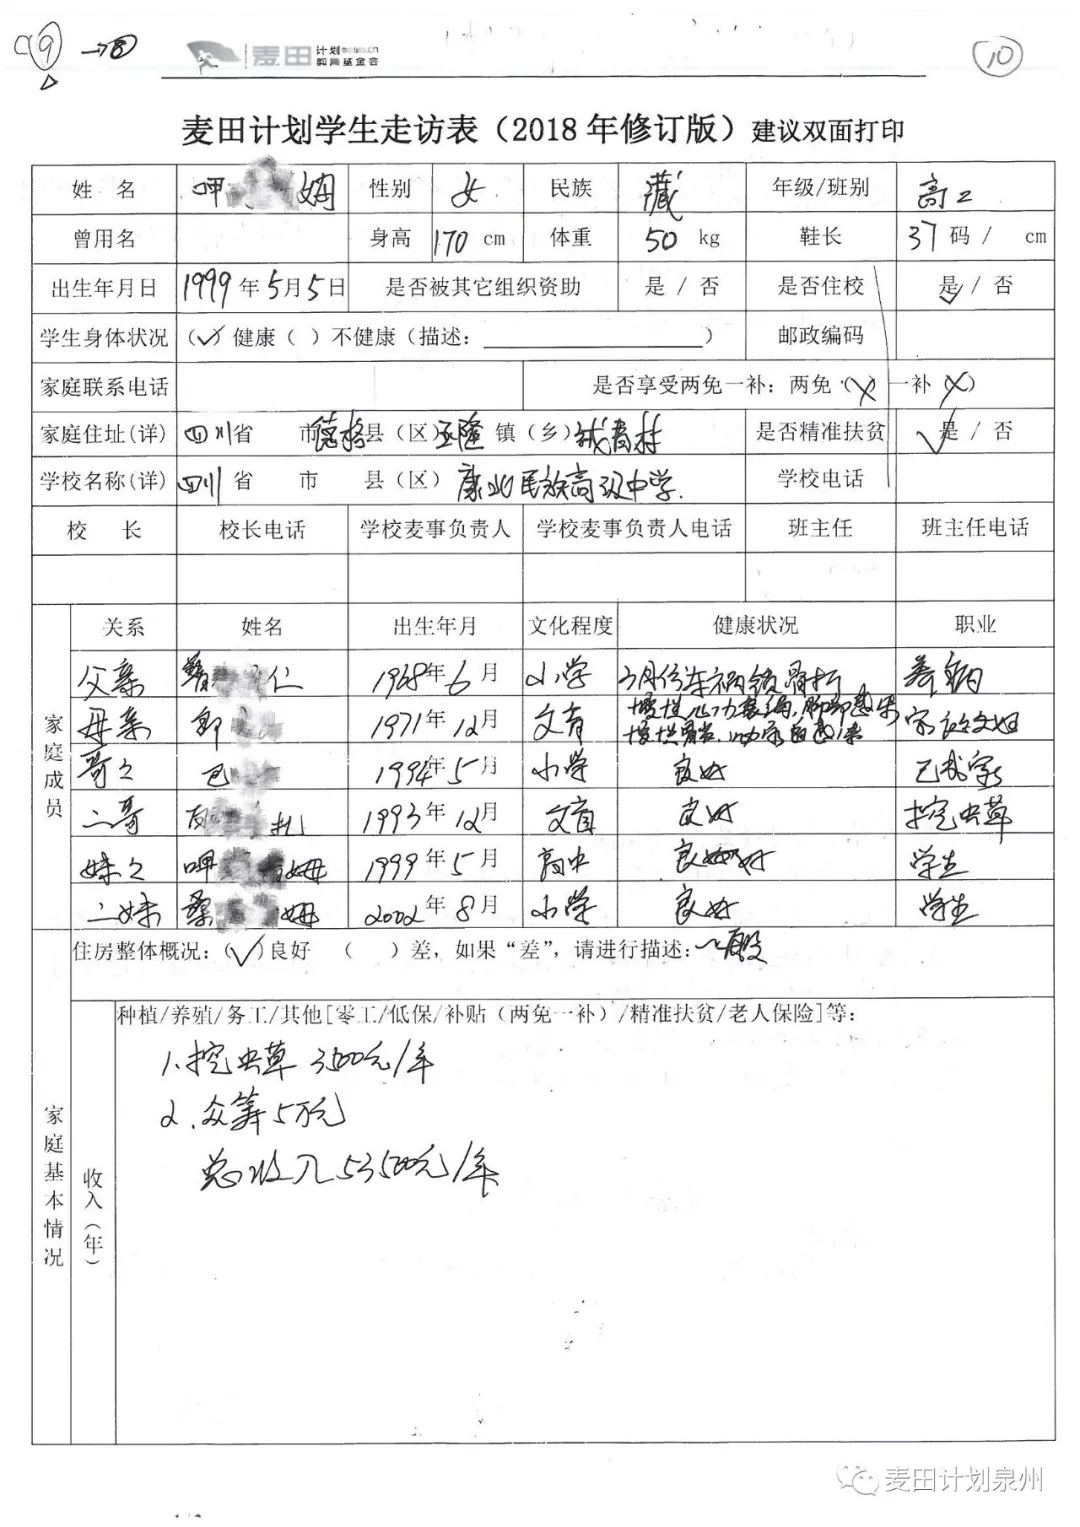 9 →8
麦田计划
教育基金会
10
麦田计划学生走访表（2018年修订版）建议双面打印
姓 名 呷 姆 性别 女 民族 藏 年级/班别 高二
曾用名 身高 170 cm 体重 50 kg 鞋长 37码/ cm
出生年月日 1999年5月5日 是否被其它组织资助 是/否 是否住校 是/否
学生身体状况 （✓）健康（ ）不健康（描述： ） 邮政编码
家庭联系电话 是否享受两免一补：两免（×）一补（×）
家庭住址(详) 四川省 市 德格县（区） 玉隆镇（乡） 村 是否精准扶贫 是/否
学校名称(详) 四川省 市 县（区） 康北民族高级中学. 学校电话
校 长 校长电话 学校麦事负责人 学校麦事负责人电话 班主任 班主任电话
家庭成员 关系 姓名 出生年月 文化程度 健康状况 职业
父亲 仁 1968年6月 小学 3月份车祸 骨折 养病
母亲 1971年12月 文盲 慢性
哥哥 巴 1994年5月 小学 良好 已成家
二哥 扎 1993年12月 文盲 良好 挖虫草
妹妹 呷 姆 1999年5月 高中 良好 学生
二妹 桑 姆 2002年8月 小学 良好 学生
家庭基本情况
住房整体概况：（✓）良好 （ ）差，如果“差”，请进行描述：一般
收入（年）
种植/养殖/务工/其他[零工/低保/补贴（两免一补）/精准扶贫/老人保险]等：
1.挖虫草 3500元/年
2.众筹5万元
总收入53500元/年
麦田计划泉州